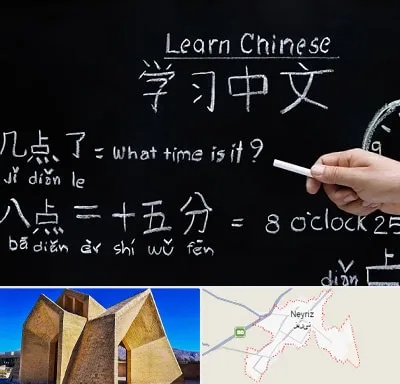 Learn Chinese
学习中文
9
几点了 = what time is it ?
jǐ diǎn le
八点二十五分 = 8 o'clock 25
bā diǎn èr shí wǔ fēn
diǎn
Neyriz
نی‌ریز